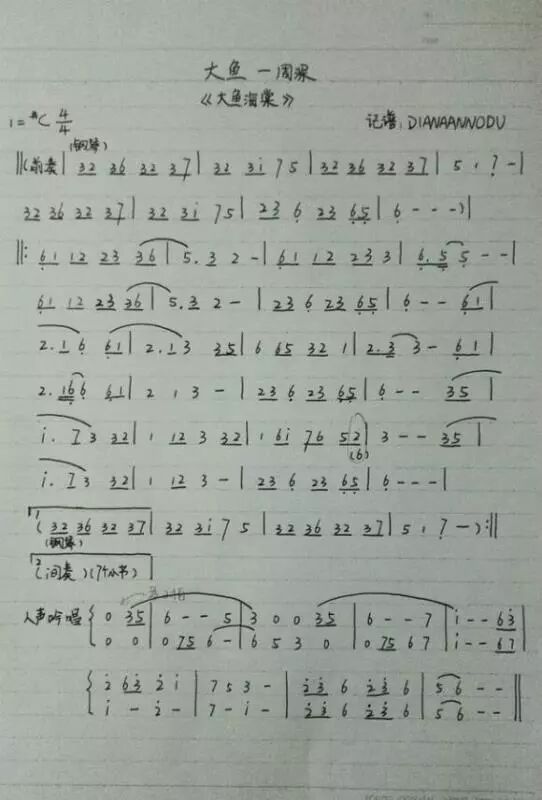 大鱼 — 周深
《大鱼海棠》
1=#C 4/4
记谱:DIANAANNODU
(钢琴)
‖(前奏 32 36 32 37 | 32 3i 7 5 | 32 36 32 37 | 5 , 7 - |
32 36 32 37 | 32 3i 7 5 | 23 6 23 65 | 6 - - - ) |
‖: 61 12 23 36 | 5. 3 2 - | 61 12 23 3 | 6. 5 5 - - |
61 12 23 36 | 5. 3 2 - | 23 6 23 65 | 6 - - 61 |
2. 1 6 61 | 2. 1 3 35 | 6 65 32 1 | 2. 3 3 - 61 |
2. 16 6 61 | 2 1 3 - | 23 6 23 65 | 6 - - 35 |
i. 7 3 32 | 1 12 3 32 | 1 6i 76 52 | 3 - - 35 |
(6)
i. 7 3 32 | 1 12 3 - | 23 6 23 65 | 6 - - - |
1
( 32 36 32 37 | 32 3i 7 5 | 32 36 32 37 | 5 , 7 - ) :‖
(钢琴)
2 (间奏)(7个小节)
人声吟唱 { 0 35 | 6 - - 5 | 3 0 0 35 | 6 - - 7 | i - - 63
0 0 | 0 75 6 - | 6 5 3 0 | 0 75 67 | i - - 67
{ 2 63 2 i | 7 5 3 - | 23 6 23 6 | 5 6 - - ‖
i - 2 - | 7 - i - | 23 6 23 6 | 5 6 - - ‖